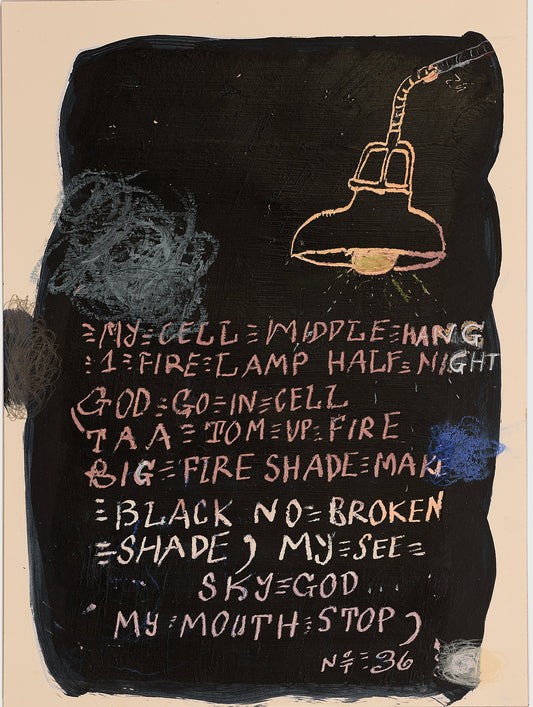 MY CELL MIDDLE HANG
1 FIRE LAMP HALF NIGHT
GOD GO IN CELL
TAA TOM UP FIRE
BIG FIRE SHADE MAK
BLACK NO BROKEN
SHADE, MY SEE
SKY GOD...
MY MOUTH STOP,
NOT 36